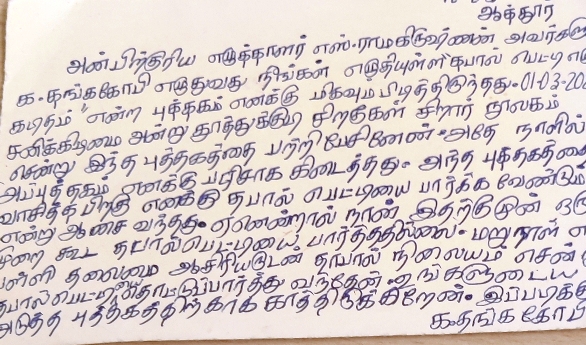 ஆத்தூர்
அன்பிற்குரிய எழுத்தாளர் எஸ்.ராமகிருஷ்ணன்
க.தங்ககோபி எழுதுவது நீங்கள் எழுதியுள்ள தபால் பெட்டி
கடிதம்" என்ற புத்தகம் எனக்கு மிகவும் பிடித்திருந்தது. 01-03-20
சனிக்கிழமை அன்று தூத்துக்குடி சிறுதீகள் சிறார் நூலகம்
சென்று இந்த புத்தகத்தை பற்றி பேசினேன். அதே நாளில்
அப்புத்தகம் எனக்கு பரிசாக கிடைத்தது. அந்த புத்தகத்தை
வாசித்த பிறகு எனக்கு தபால் பெட்டியை பார்க்க வேண்டும்
என்று ஆசை வந்தது. ஏனென்றால் நான் இதற்குமுன் ஒரு
முறை கூட தபால்பெட்டியை பார்த்ததில்லை. மறுநாள்
பள்ளி தலைமை ஆசிரியருடன் தபால் நிலையம்
தபால்பெட்டியை தொட்டுப்பார்த்து வந்தேன். உங்களுடைய
அடுத்த புத்தகத்திற்காக காத்திருக்கிறேன். இப்படிக்கு
க.தங்க கோபி